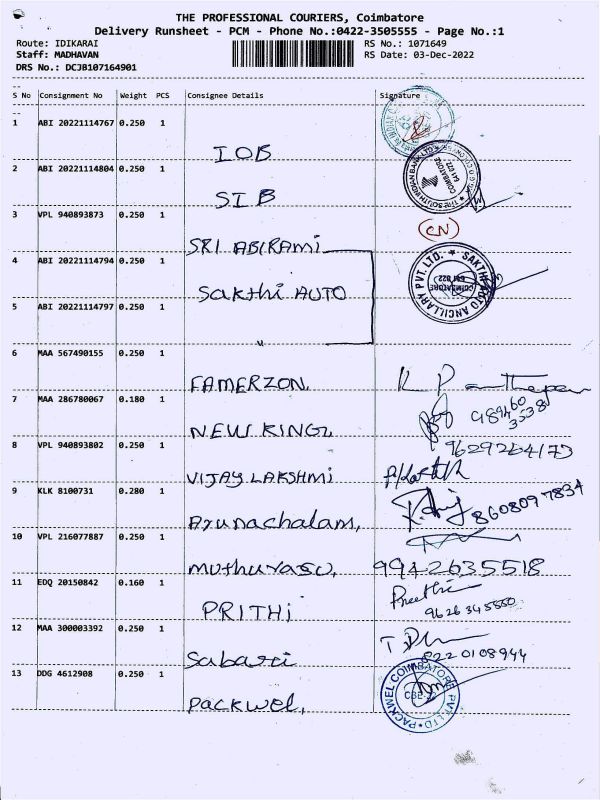 THE PROFESSIONAL COURIERS, Coimbatore
Delivery Runsheet - PCM - Phone No.:0422-3505555 - Page No.:1
Route: IDIKARAI
RS No.: 1071649
Staff: MADHAVAN
RS Date: 03-Dec-2022
DRS No.: DCJB107164901
S No Consignment No Weight PCS Consignee Details Signature
1 ABI 20221114767 0.250 1
IOB
2 ABI 20221114804 0.250 1
SIB
THE SOUTH INDIAN BANK LTD. COIMBATORE 641 022
3 VPL 940893873 0.250 1
SRI ABIRAMI
CN
4 ABI 20221114794 0.250 1
Sakthi AUTO
SAKTHI AUTO ANCILLARY PVT. LTD. COIMBATORE 641 022
5 ABI 20221114797 0.250 1
6 MAA 567490155 0.250 1
FAMERZON,
7 MAA 286780067 0.180 1
NEW KING,
8 VPL 940893802 0.250 1
9629264173
VIJAY LAKSHMI
9 KLK 8100731 0.280 1
Arunachalam,
8608097834
10 VPL 216077887 0.250 1
muthuvasu,
9942635518
11 EDQ 20150842 0.160 1
PRITHi
Preethi
9626345550
12 MAA 300003392 0.250 1
Sabari
8220108944
13 DDG 4612908 0.250 1
Packwel,
PACKWEL COIMBATORE PVT. LTD. CBE